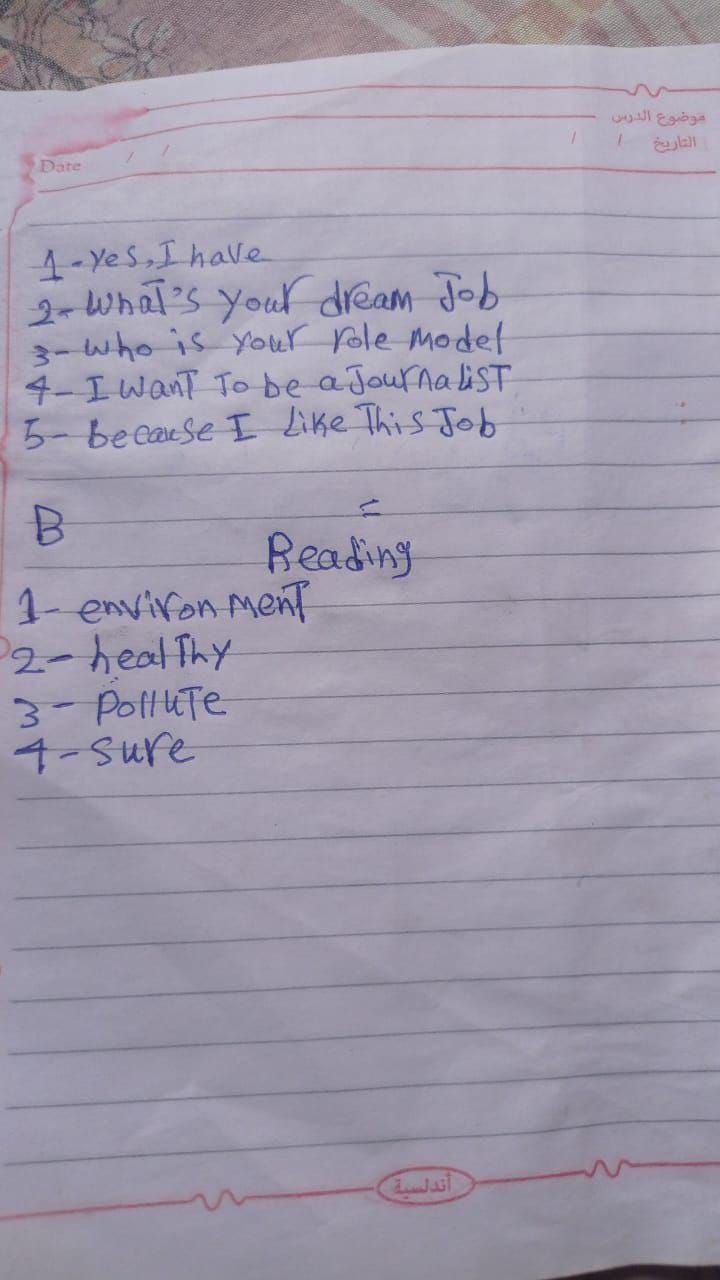 موضوع الدرس
Date / / / / التاريخ
1-yes, I have
2-What's your dream Job
3-who is your role model
4-I want To be a JournaliST
5-because I Like This Job
B =
Reading
1-environment
2-healThy
3-polluTe
4-sure
أندلسية